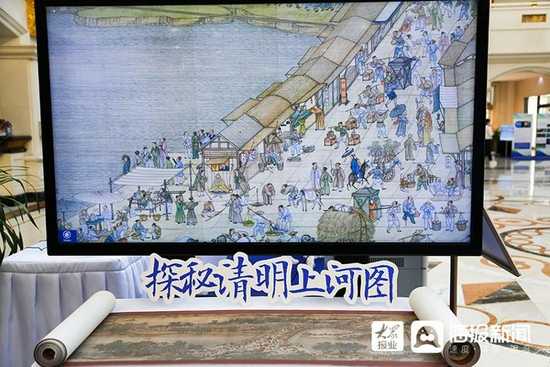 探秘清明上河图
大众报业
海报新闻